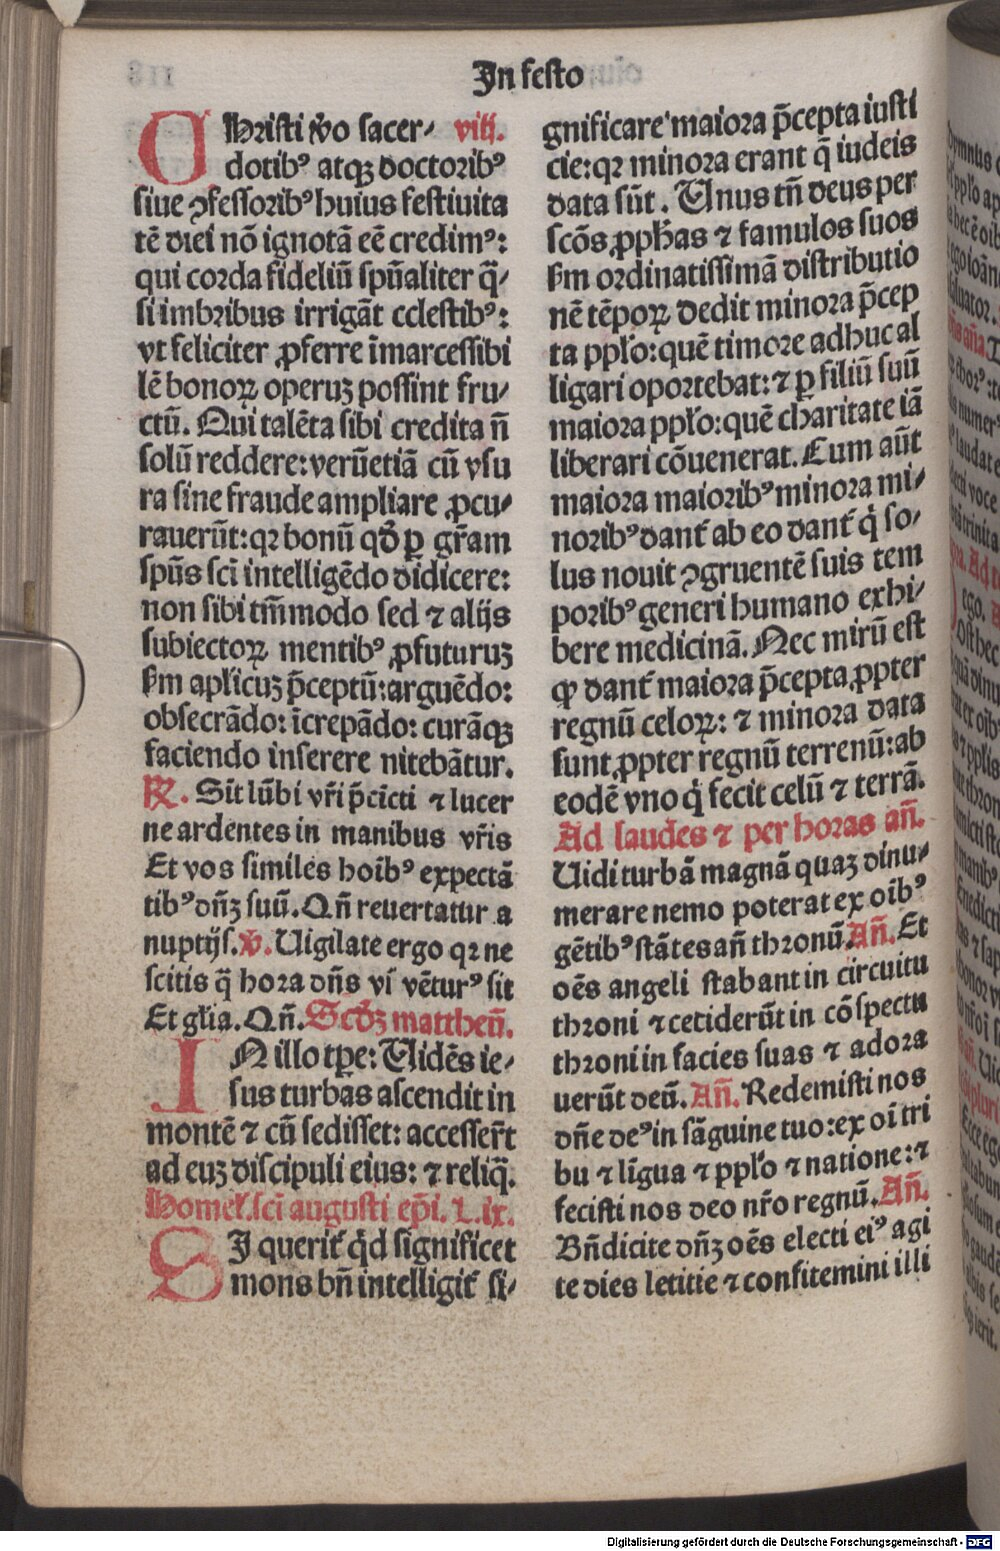 In festo
CHristi v̾o sacer⸗ viij.
dotibꝰ atqꝫ doctoribꝰ
siue ꝯfessoribꝰ huius festiuita
tē diei nō ignotā eē credimꝰ:
qui corda fideliū spūaliter q̄⸗
si imbribus irrigāt celestibꝰ:
vt feliciter ꝓferre īmarcessibi
lē bonoꝝ operuꝫ possint fru⸗
ctū. Qui talēta sibi credita n̄
solū reddere: verūetiā cū vsu
ra sine fraude ampliare ꝓcu⸗
rauerūt: qꝛ bonū qd̾ ꝑ gr̄am
spūs sci̅ intelligēdo didicere:
non sibi tm̄modo sed ⁊ alijs
subiectoꝝ mentibꝰ ꝓfuturuꝫ
ẜm aplicuꝫ p̄ceptū: arguēdo:
obsecrādo: īcrepādo: curāqꝫ
faciendo inserere nitebātur.
℞. Sīt lūbi vr̄i p̄cīcti ⁊ lucer
ne ardentes in manibus vr̄is
Et vos similes hoībꝰ expectā
tibꝰ dn̄ꝫ suū. Qn̄ reuertatur a
nuptijs. ℣. Uigilate ergo qꝛ ne
scitis q̄ hora dn̄s vr̄ vētur̉ sit
Et glīa. Qn̄. Scd̾ꝫ mattheū.
IN illo tꝑe: Uidēs ie⸗
sus turbas ascendit in
montē ⁊ cū sedisset: accesser̄t
ad euꝫ discipuli eius: ⁊ reliq̄.
Homel̾. sci̅ augusti ep̄i. L. ix.
SI querit̉ qd̾ significet
mons bn̄ intelligit̉ si⸗
gnificare maiora p̄cepta iusti
cie: qꝛ minora erant q̄ iudeis
data sūt. Unus tn̄ deus per
scōs ꝓph̄as ⁊ famulos suos
ẜm ordinatissimā distributio
nē tēpoꝝ dedit minora p̄cep
ta pplo̅: quē timore adhuc al
ligari oportebat: ⁊ ꝑ filiū suū
maiora pplo̅: quē charitate iā
liberari cōuenerat. Cum aūt
maiora maioribꝰ minora mi⸗
noribꝰ dant̉ ab eo dant̉ q̇ so⸗
lus nouit ꝯgruentē suis tem
poribꝰ generi humano exhi⸗
bere medicinā. Nec mirū est
ꝙ dant̉ maiora p̄cepta ꝓpter
regnū celoꝝ: ⁊ minora data
sunt ꝓpter regnū terrenū: ab
eodē vno q̇ fecit celū ⁊ terrā.
Ad laudes ⁊ per horas an̄.
Uidi turbā magnā quaꝫ dinu⸗
merare nemo poterat ex oībꝰ
gētibꝰ stātes an̄ thronū. An̄. Et
oēs angeli stabant in circuitu
throni ⁊ ceciderūt in cōspectu
throni in facies suas ⁊ adora
uerūt deū. An̄. Redemisti nos
dn̄e deꝰ in sāguine tuo: ex oī tri
bu ⁊ līgua ⁊ pplo̅ ⁊ natione: ⁊
fecisti nos deo nr̄o regnū. An̄.
Bn̄dicite dn̄ꝫ oēs electi eiꝰ agi
te dies letitie ⁊ confitemini illi
Digitalisierung gefördert durch die Deutsche Forschungsgemeinschaft - DFG